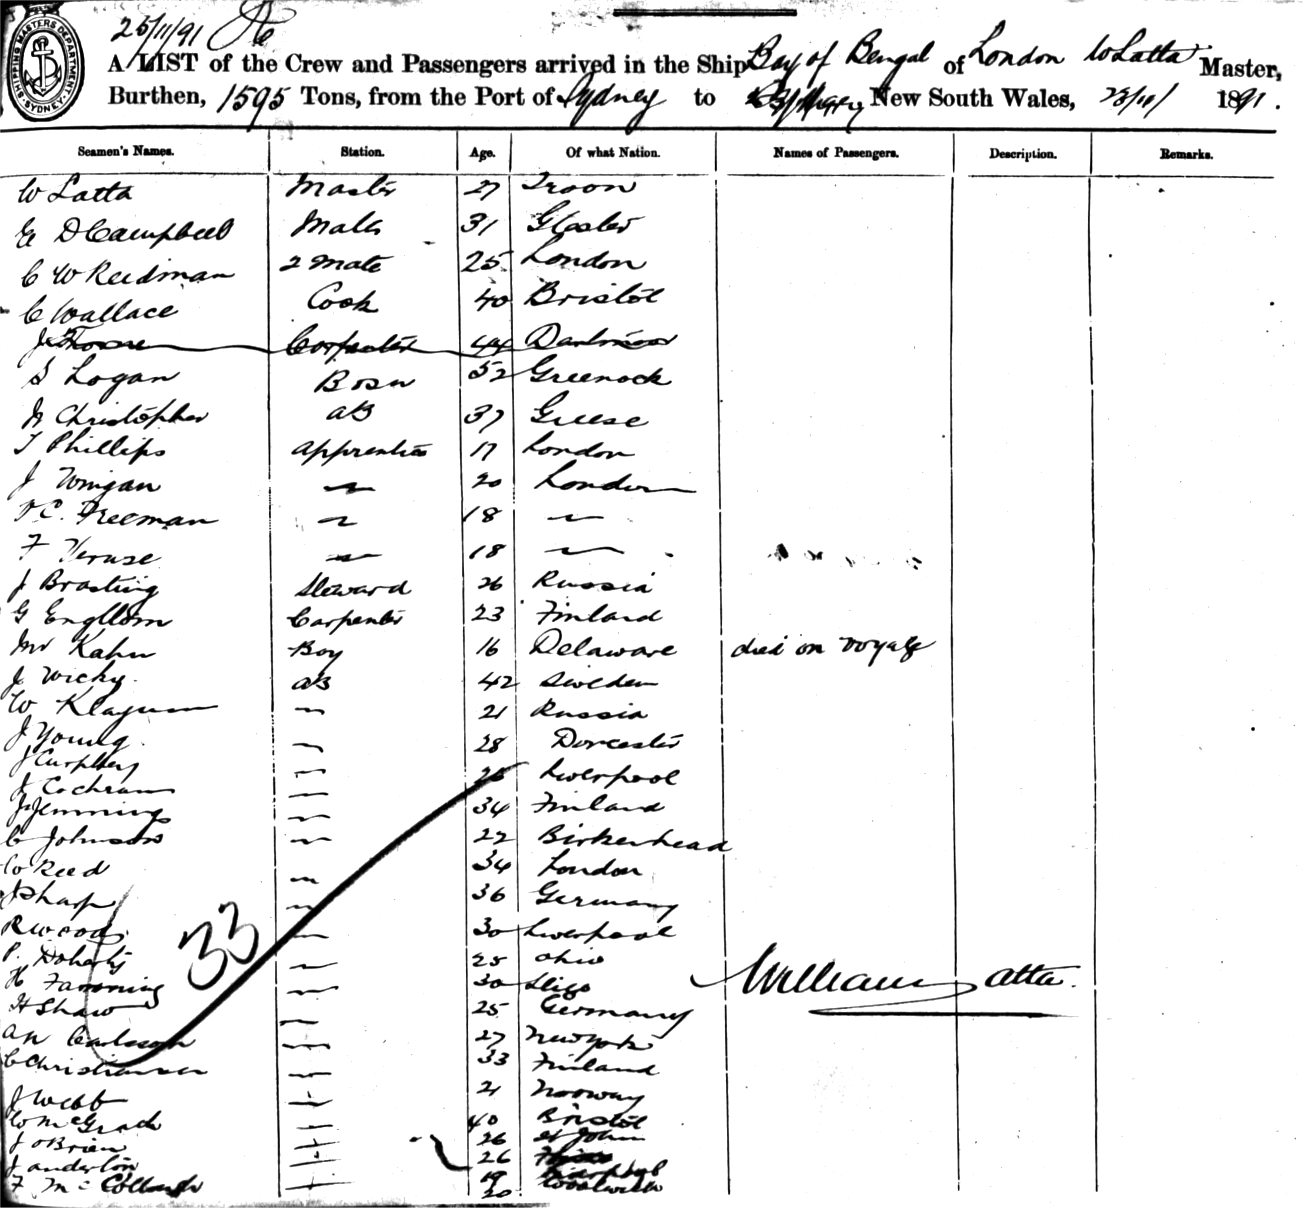 25/11/91
SHIPPING MASTERS DEPARTMENT SYDNEY
A LIST of the Crew and Passengers arrived in the Ship Bay of Bengal of London W Latta Master,
Burthen, 1595 Tons, from the Port of Sydney to New South Wales, 1891.
Seamen's Names. Station. Age. Of what Nation. Names of Passengers. Description. Remarks.
W Latta Master 27 Troon
D Campbell Mate 31 Gloster
C W Reedman 2 Mate 25 London
C Wallace Cook 40 Bristol
J Carpenter 44
S Logan Bosn 52 Greenock
Christopher AB 37 Greese
T Phillips Apprentice 17 London
J 20 London
C. Freeman 18
F 18
J Brasting Steward 26 Russia
G Engllom Carpenter 23 Finland
Kahn Boy 16 Delaware died on voyage
J Wichy AB 42 Sweden
W 21 Russia
J Young 28 Dorcester
J Liverpool
J Cochran 34 Finland
J Jennings 22 Birkenhead
C Johnson 34 London
W Reed 36 Germany
J Sharp 30 Liverpool
R Woods 25 Ohio
33
P. Doherty 30 Sligo
H Fanning 25 Germany
William Latta
H Shaw 27 New York
A N Carlsson 33 Finland
C Christiansen 21 Norway
J Webb 40 Bristol
W McGrath 26 St John
J O Brien 26
J Anderton 19
F McCollough 20